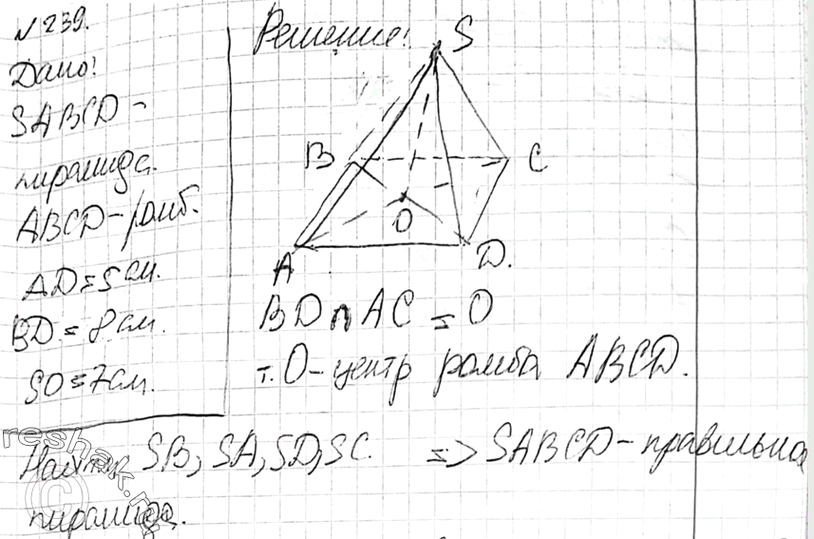 №239.
Дано:
SABCD -
пирамида.
ABCD - ромб.
AD = 5 см.
BD = 8 см.
SO = 7 см.
Найти: SB, SA, SD, SC.
пирамида.
Решение:
S
B
C
O
A
D.
BD ∩ AC = O
т. O - центр ромба ABCD.
=> SABCD - правильная
reshak.ru